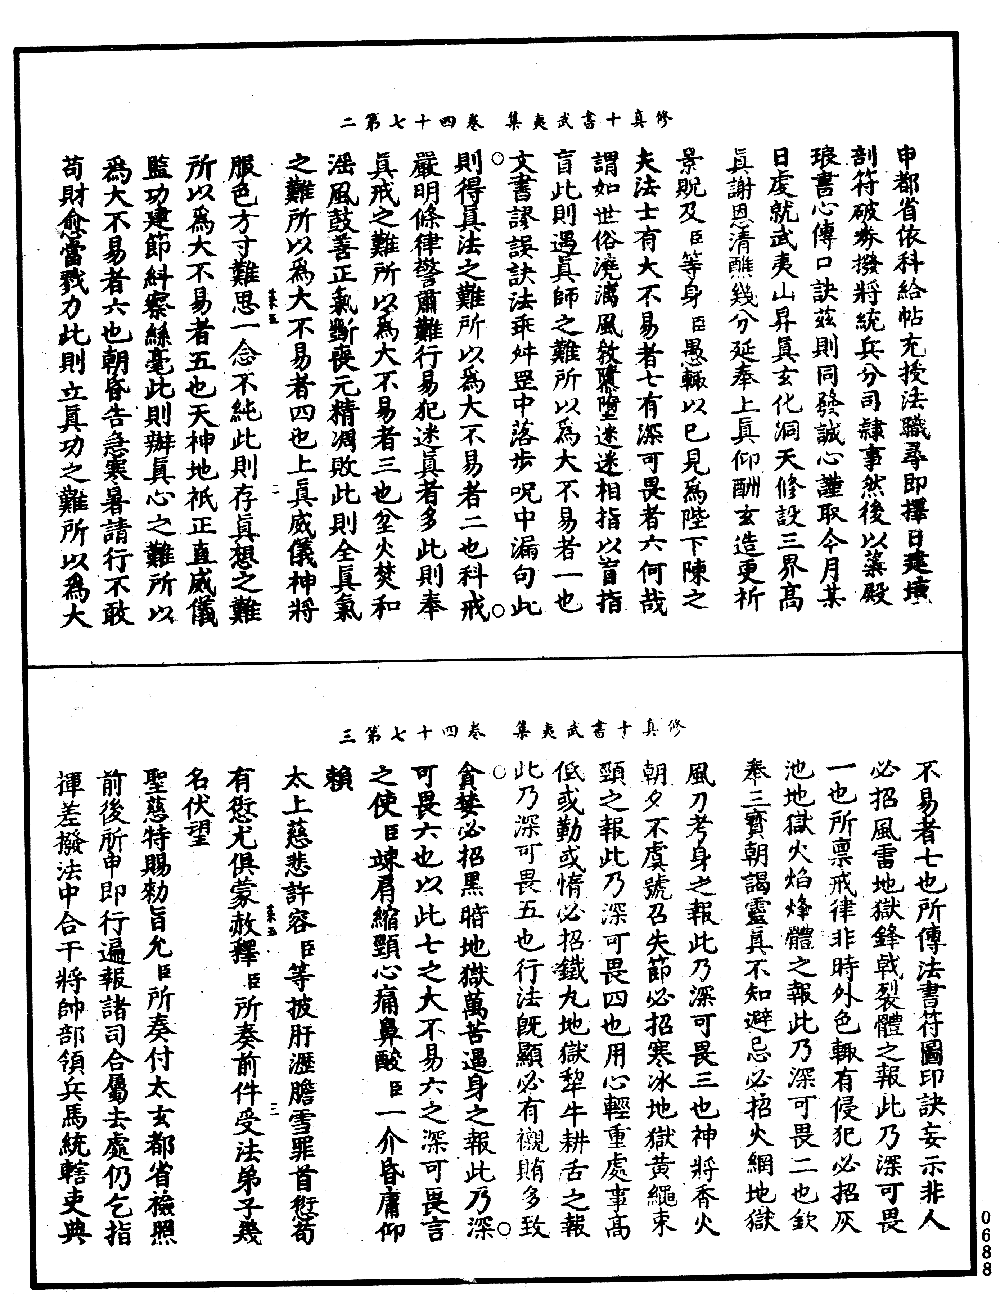 修真十書武夷集卷四十七第二
申都省依科給帖充授法職尋即擇日建壇
剖符破券撥將統兵分司隸事然後以蘂殿
琅書心傳口訣茲則同發誠心謹取今月某
日虔就武夷山昇真玄化洞天修設三界高
真謝恩清醮幾分延奉上真仰酬玄造更祈
景貺及臣等身臣愚輒以己見為陛下陳之
夫法士有大不易者七有深可畏者六何哉
謂如世俗澆漓風教隳墮迷迷相指以盲指
盲此則遇真師之難所以為大不易者一也
文書謬誤訣法乖舛罡中落步呪中漏句此
則得真法之難所以為大不易者二也科戒
嚴明條律警肅難行易犯迷真者多此則奉
真戒之難所以為大不易者三也坌火焚和
淫風鼓善正氣斲喪元精凋敗此則全真氣
之難所以為大不易者四也上真威儀神將
服色方寸難思一念不純此則存真想之難
所以為大不易者五也天神地祇正直威儀
監功建節糾察絲毫此則辦真心之難所以
為大不易者六也朝昏告急寒暑請行不敢
苟財愈當戮力此則立真功之難所以為大
修真十書武夷集卷四十七第三
不易者七也所傳法書符圖印訣妄示非人
必招風雷地獄鋒戟裂體之報此乃深可畏
一也所禀戒律非時外色輒有侵犯必招灰
池地獄火焰烽體之報此乃深可畏二也欽
奉三寶朝謁靈真不知避忌必招火網地獄
風刀考身之報此乃深可畏三也神將香火
朝夕不虔號召失節必招寒冰地獄黃繩束
頸之報此乃深可畏四也用心輕重處事高
低或勤或惰必招鐵九地獄犁牛耕舌之報
此乃深可畏五也行法既顯必有襯賄多致
貪婪必招黑暗地獄萬苦逼身之報此乃深
可畏六也以此七之大不易六之深可畏言
之使臣竦肩縮頸心痛鼻酸臣一介昏庸仰
賴
太上慈悲許容臣等披肝瀝膽雪罪首愆苟
有愆尤俱蒙赦釋臣所奏前件受法弟子幾
名伏望
聖慈特賜勑旨允臣所奏付太玄都省檢照
前後所申即行遍報諸司合屬去處仍乞指
揮差撥法中合干將帥部領兵馬統轄吏典
0688